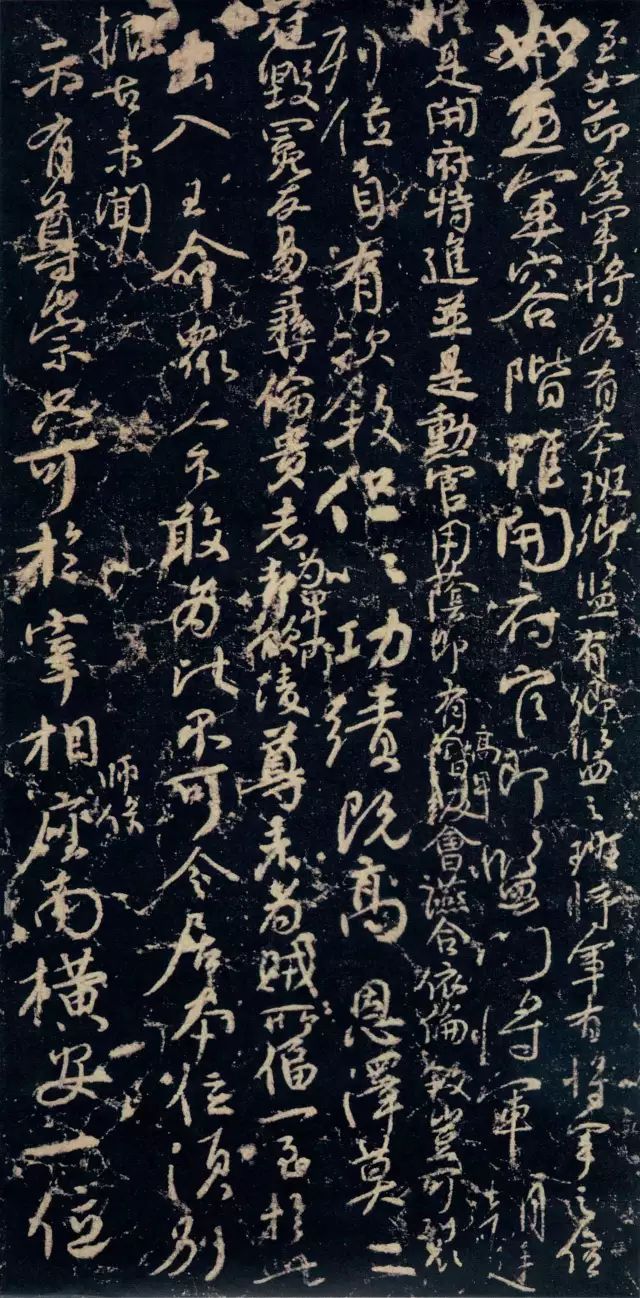 至如節度軍將各有本班卿監有卿監之班將軍有將軍之位
如魚軍容階雖開府官即監門將軍朝廷
縱是開府特進並是勳官用蔭即有高卑會讌合依倫敘豈可裂
列位自有次敘但以功績既高恩澤莫二
冠毀冕反易彝倫貴者為卑所凌尊者為賊所偪一至於此
出入王命衆人不敢為比不可令居本位須別
振古未聞
示有尊崇只可於宰相師保座南橫安一位